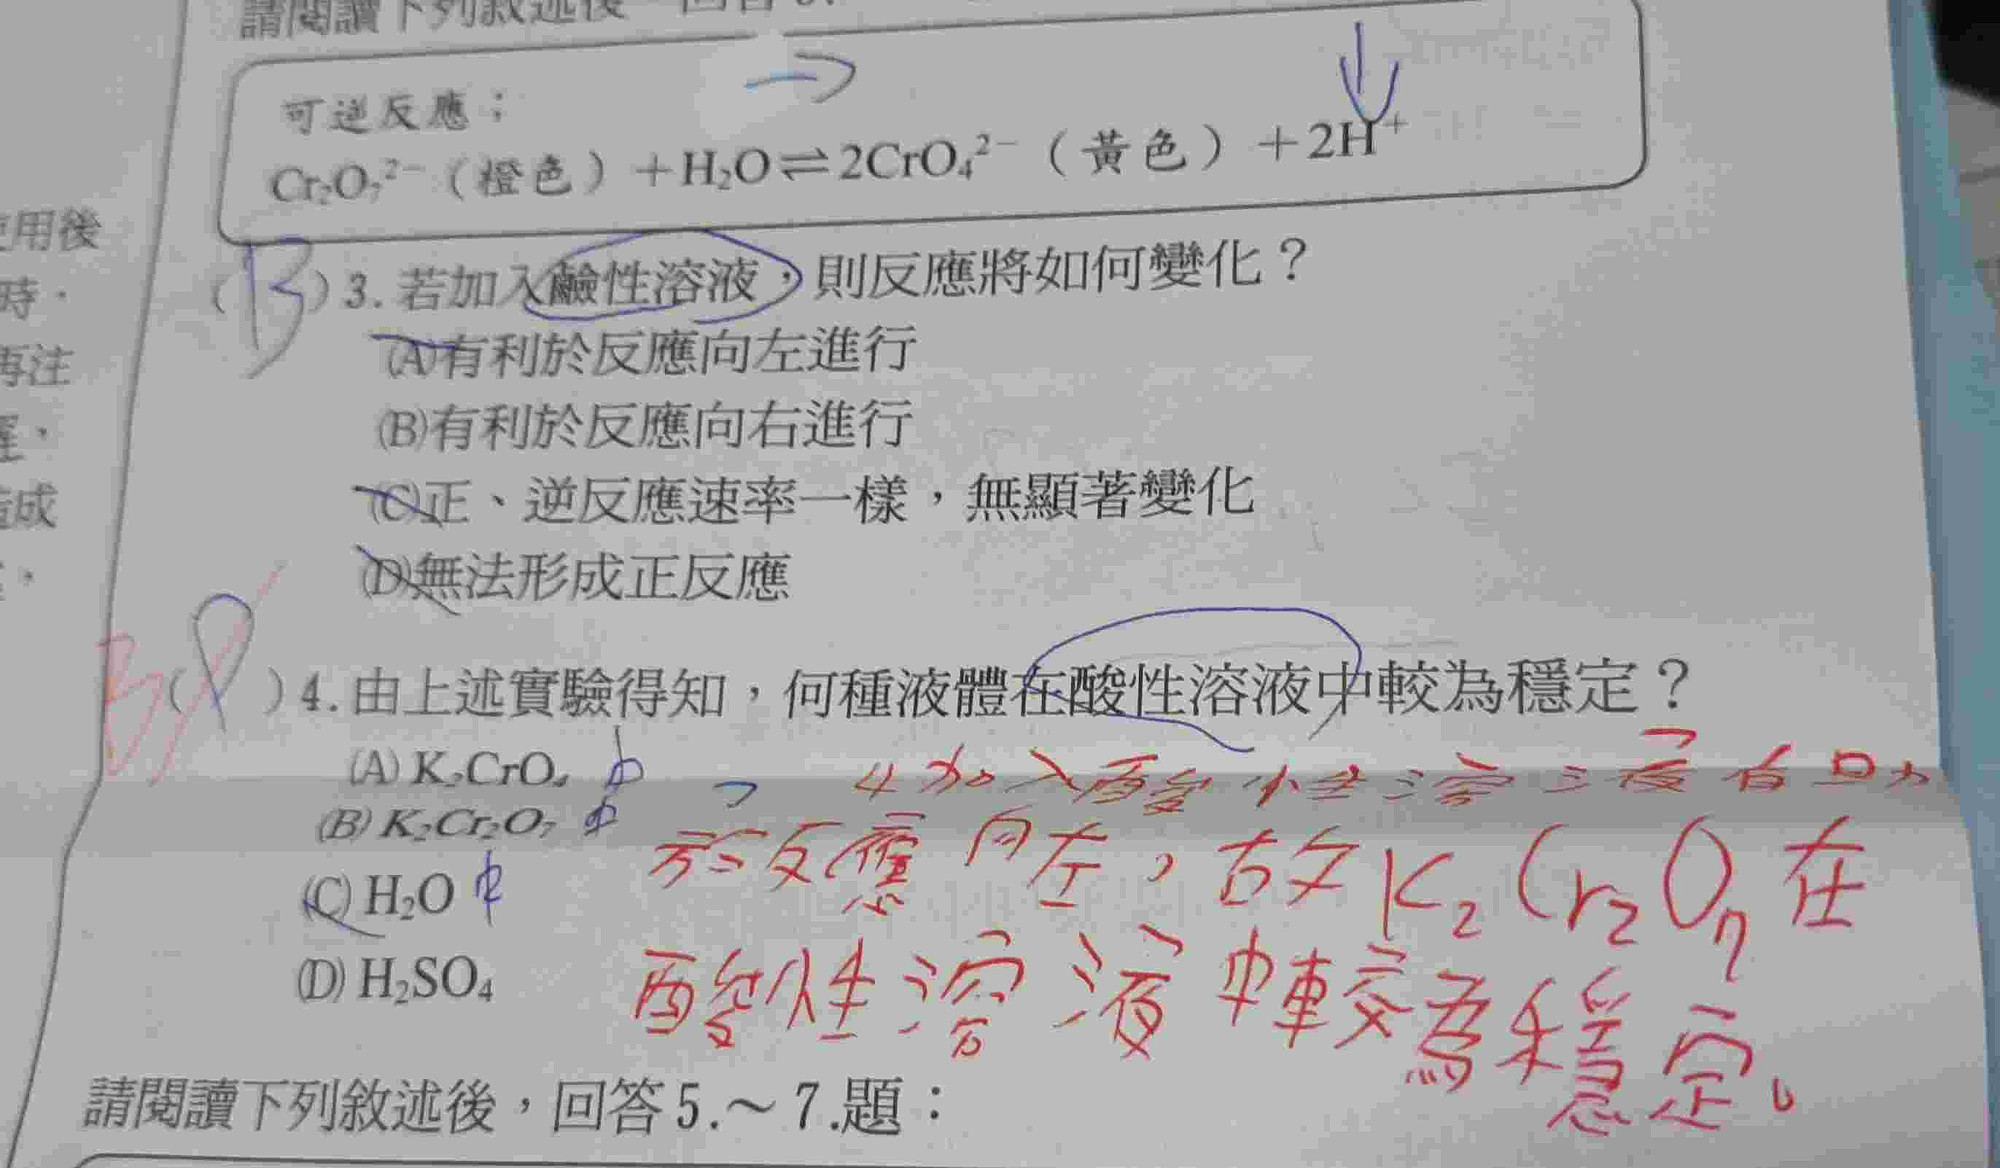 請閱讀下列敘述後，回答3.
可逆反應：
Cr₂O₇²⁻（橙色）＋H₂O⇌2CrO₄²⁻（黃色）＋2H⁺
使用後
時，
再注
造成
(B)3.若加入鹼性溶液，則反應將如何變化？
(A)有利於反應向左進行
(B)有利於反應向右進行
(C)正、逆反應速率一樣，無顯著變化
(D)無法形成正反應
B( )4.由上述實驗得知，何種液體在酸性溶液中較為穩定？
(A) K₂CrO₄ 中
(B) K₂Cr₂O₇ 中
(C) H₂O 中
(D) H₂SO₄
4加入酸性溶液有利
於反應向左，故K₂Cr₂O₇在
酸性溶液中較為穩定。
請閱讀下列敘述後，回答5.～7.題：